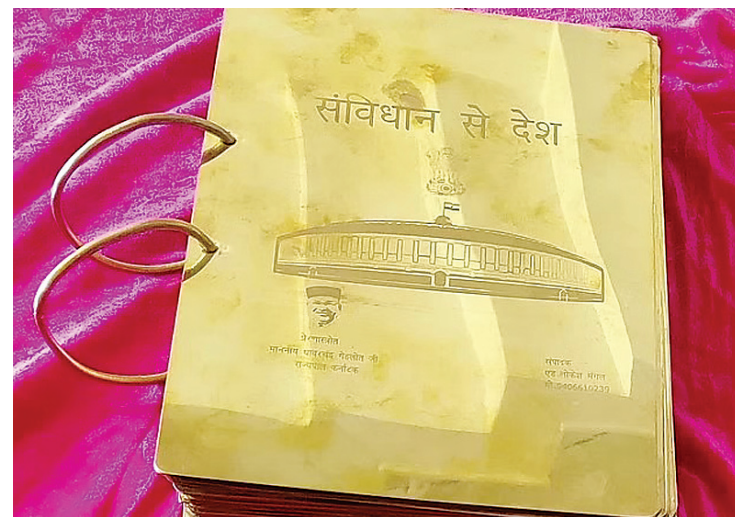 संविधान से देश
प्रेरणास्त्रोत
माननीय थावरचंद गेहलोत जी
राज्यपाल कर्नाटक
संपादक
एड लोकेश मंगल
मो.9406616239